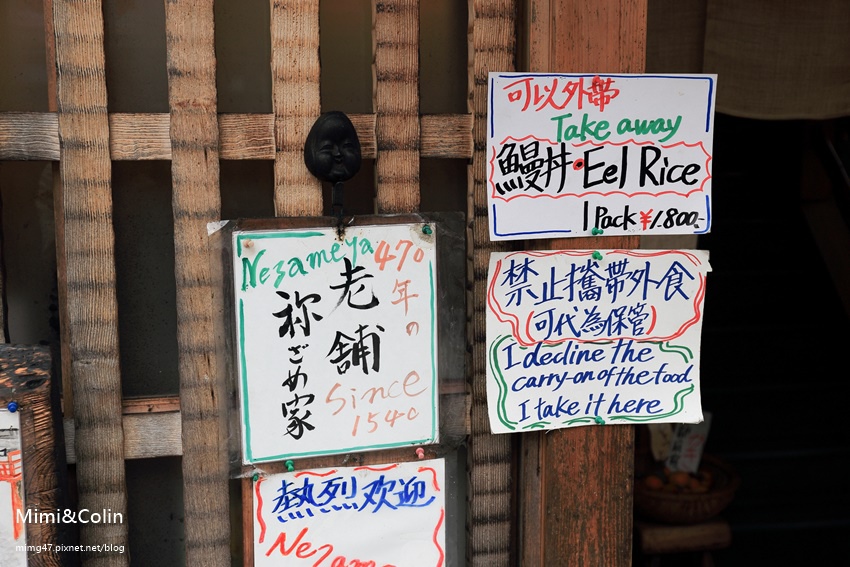 可以外帶
Take away
鰻丼・Eel Rice
1 Pack ¥1.800.-
禁止攜帶外食
(可代為保管)
I decline the
carry-on of the food
I take it here
Nezameya
470年の
老舗
祢ざめ家
Since
1540
熱烈欢迎
Mimi&Colin
mimg47.pixnet.net/blog